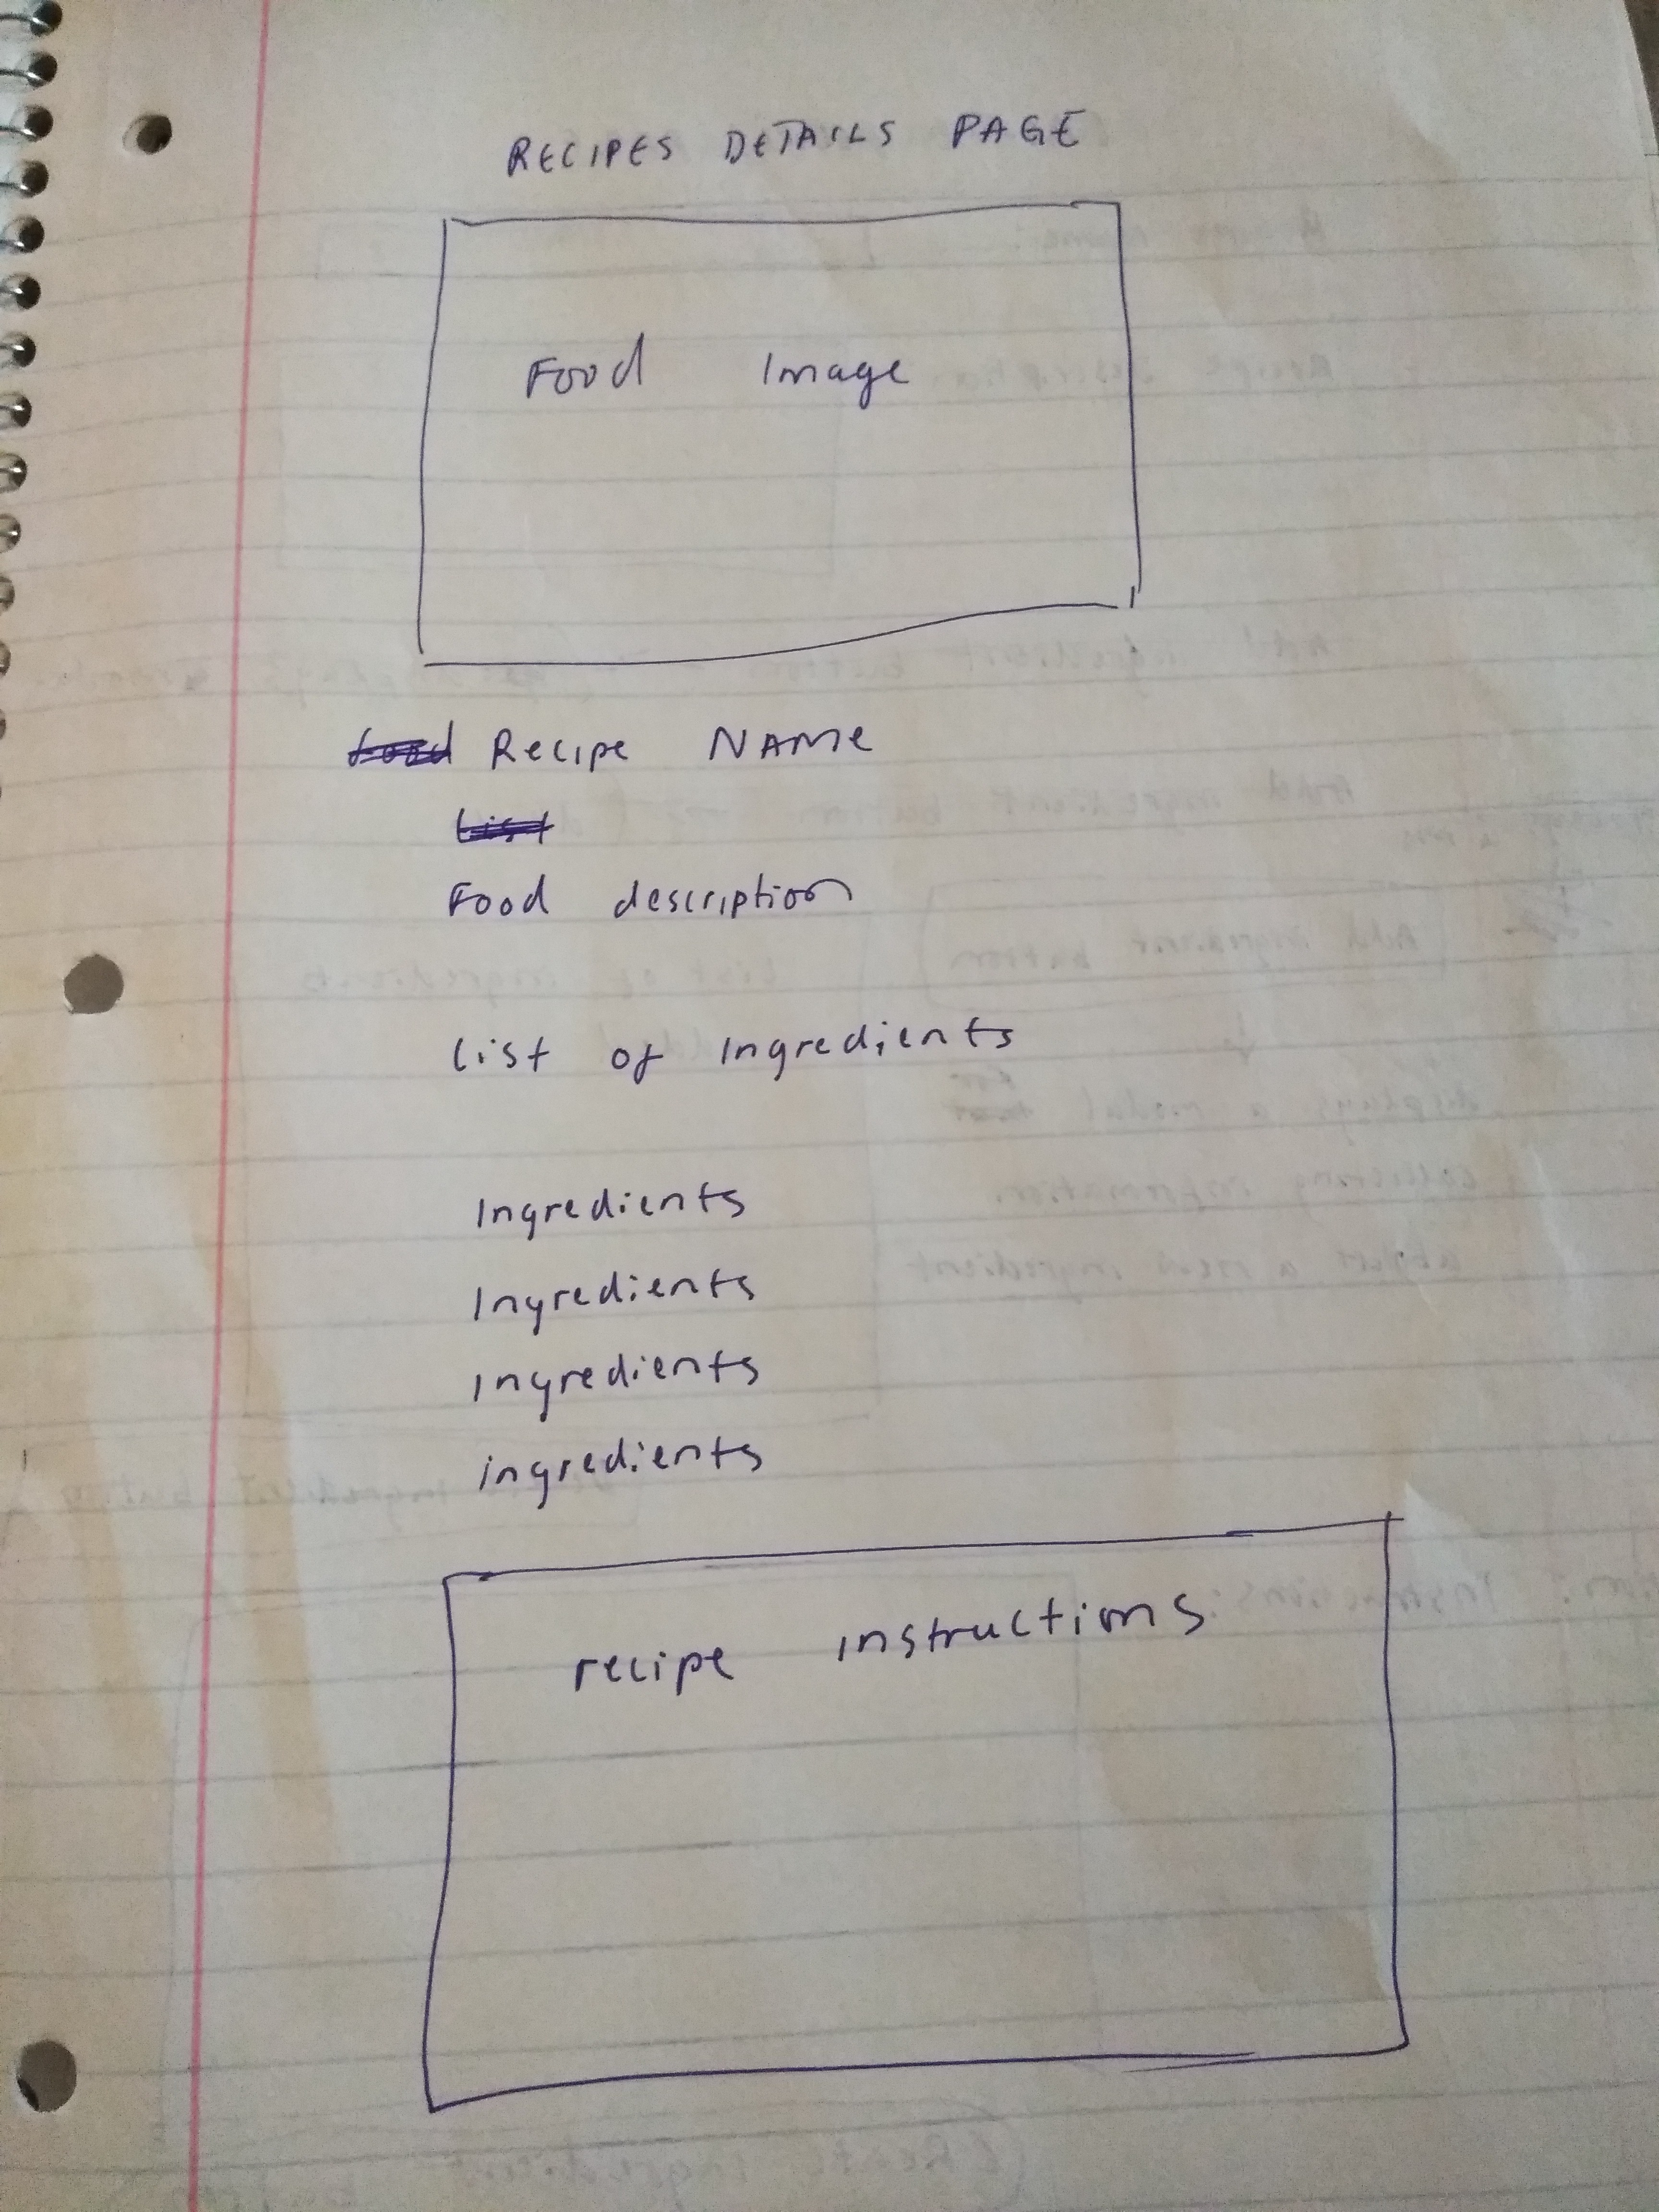 RECIPES DETAILS PAGE
Food Image
food Recipe NAMe
List
Food description
List of Ingredients
Ingredients
Ingredients
Ingredients
ingredients
recipe instructions